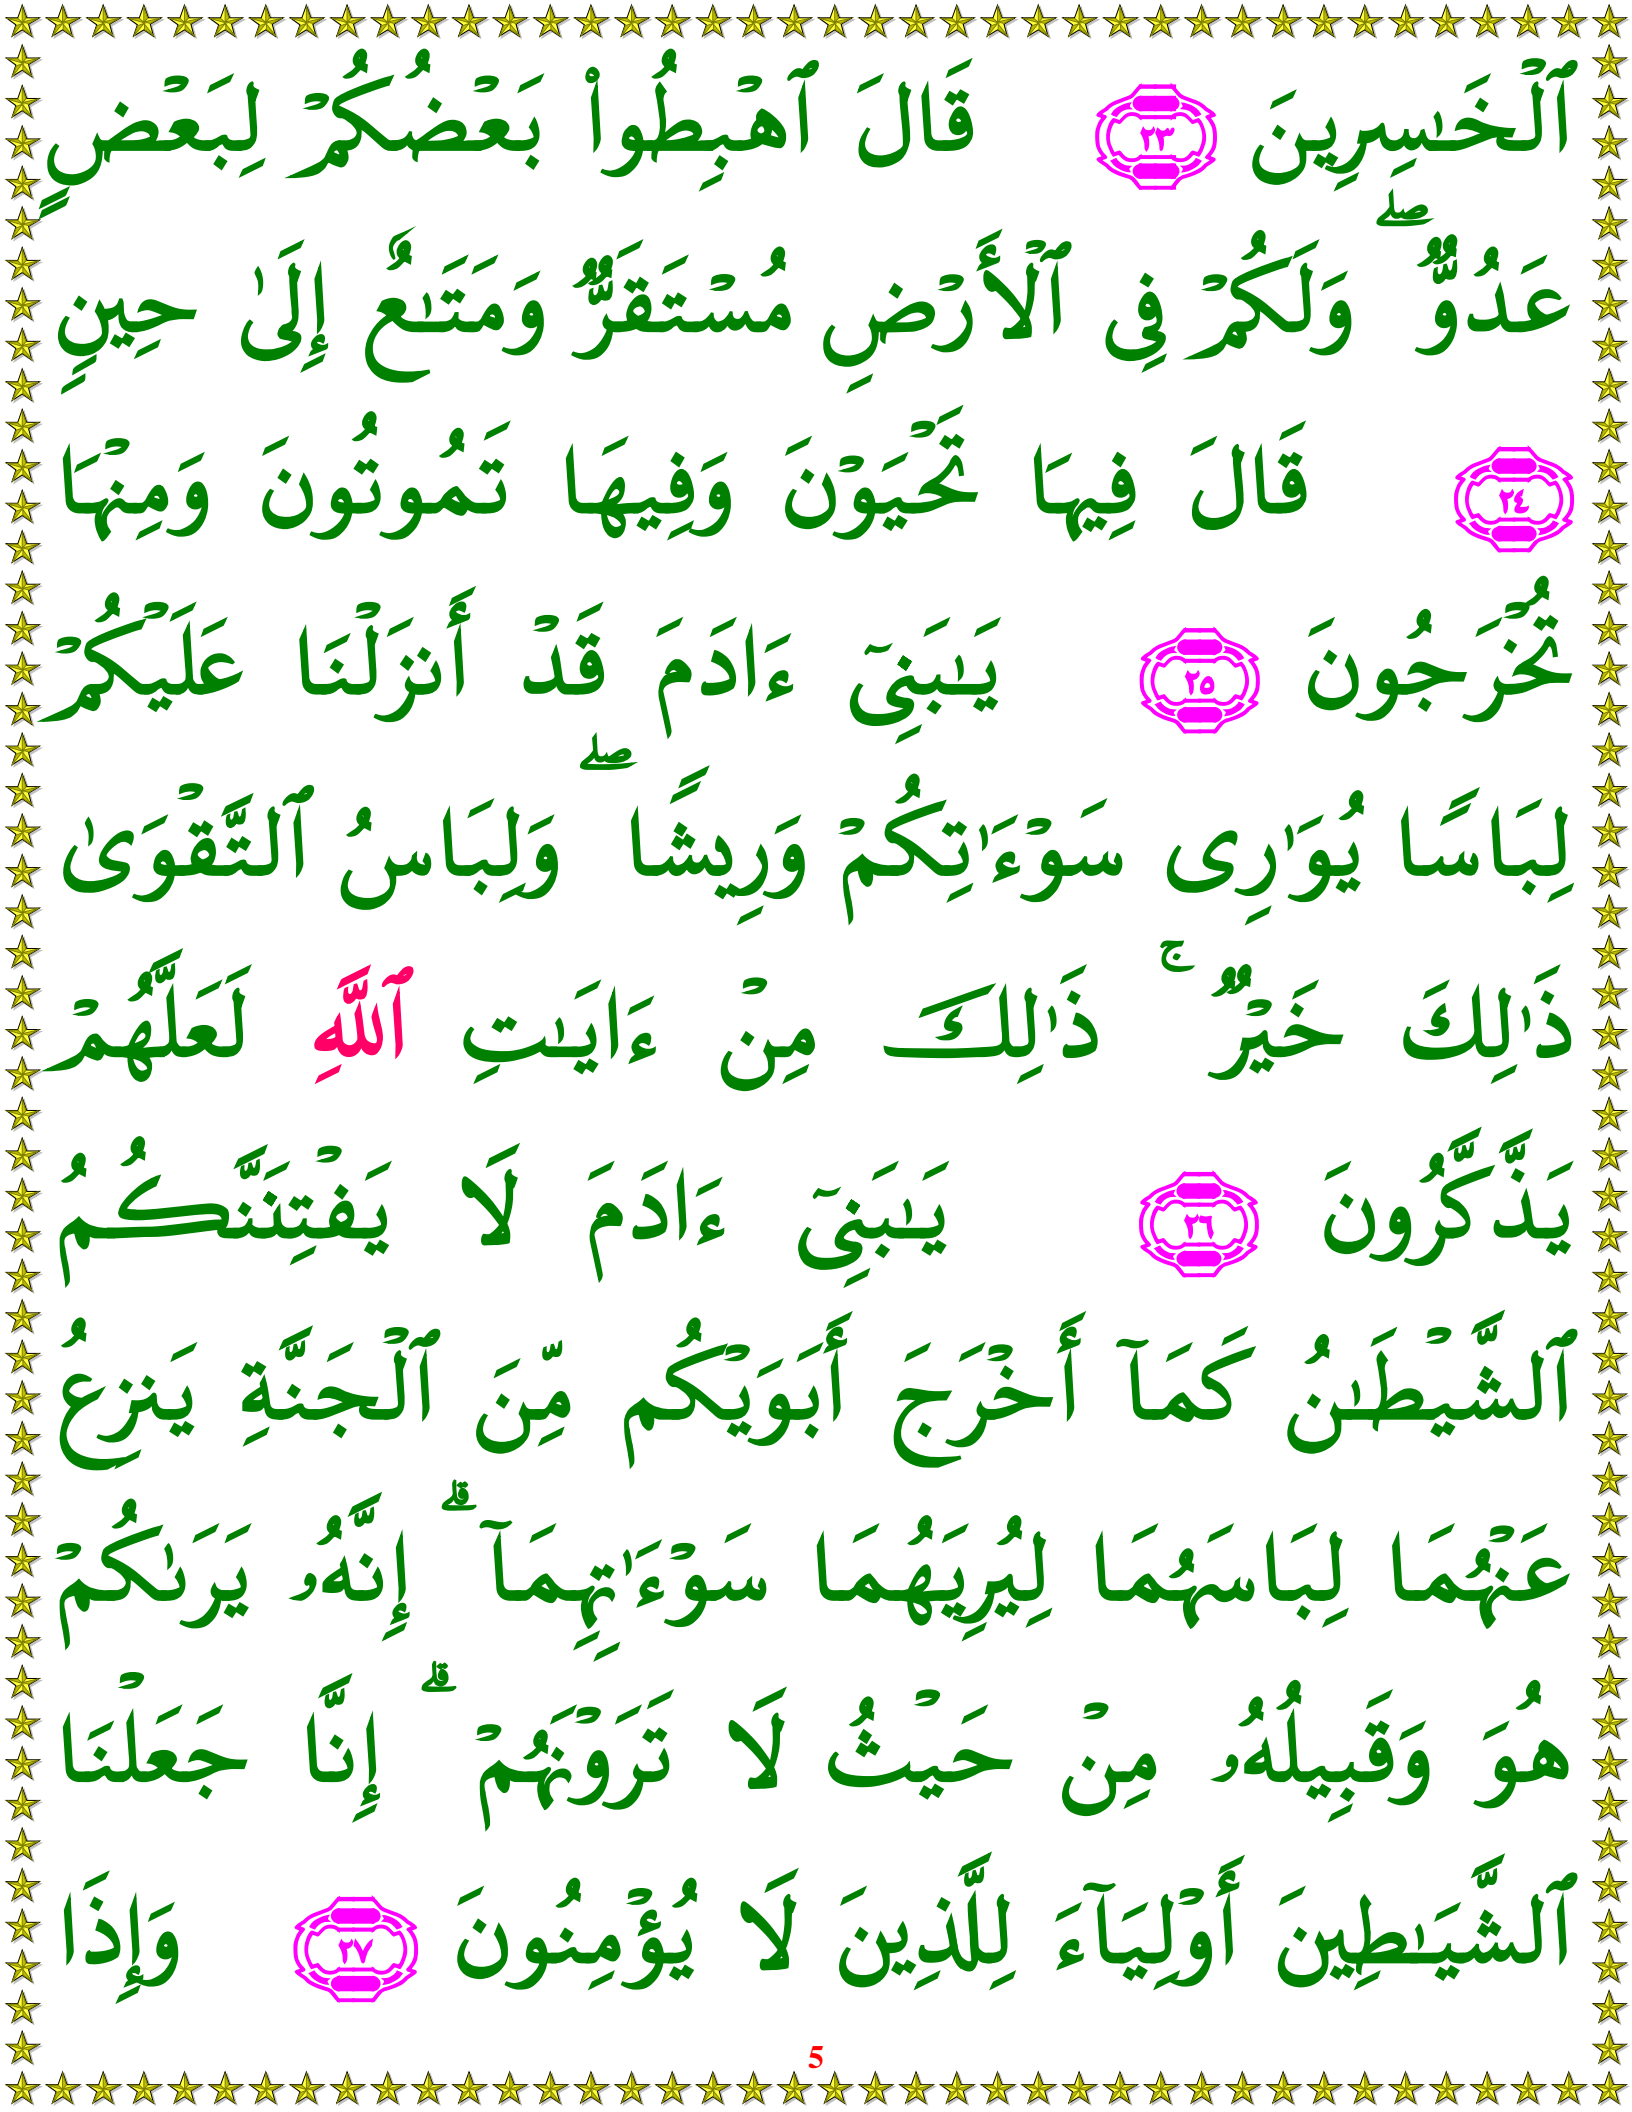 ٱلْخَـٰسِرِينَ ٢٣ قَالَ ٱهْبِطُوا۟ بَعْضُكُمْ لِبَعْضٍ
عَدُوٌّ ۖ وَلَكُمْ فِى ٱلْأَرْضِ مُسْتَقَرٌّ وَمَتَـٰعٌ إِلَىٰ حِينٍ
٢٤ قَالَ فِيهَا تَحْيَوْنَ وَفِيهَا تَمُوتُونَ وَمِنْهَا
تُخْرَجُونَ ٢٥ يَـٰبَنِىٓ ءَادَمَ قَدْ أَنزَلْنَا عَلَيْكُمْ
لِبَاسًا يُوَٰرِى سَوْءَٰتِكُمْ وَرِيشًا ۖ وَلِبَاسُ ٱلتَّقْوَىٰ
ذَٰلِكَ خَيْرٌ ۚ ذَٰلِكَ مِنْ ءَايَـٰتِ ٱللَّهِ لَعَلَّهُمْ
يَذَّكَّرُونَ ٢٦ يَـٰبَنِىٓ ءَادَمَ لَا يَفْتِنَنَّكُمُ
ٱلشَّيْطَـٰنُ كَمَآ أَخْرَجَ أَبَوَيْكُم مِّنَ ٱلْجَنَّةِ يَنزِعُ
عَنْهُمَا لِبَاسَهُمَا لِيُرِيَهُمَا سَوْءَٰتِهِمَآ ۗ إِنَّهُۥ يَرَىٰكُمْ
هُوَ وَقَبِيلُهُۥ مِنْ حَيْثُ لَا تَرَوْنَهُمْ ۗ إِنَّا جَعَلْنَا
ٱلشَّيَـٰطِينَ أَوْلِيَآءَ لِلَّذِينَ لَا يُؤْمِنُونَ ٢٧ وَإِذَا
5